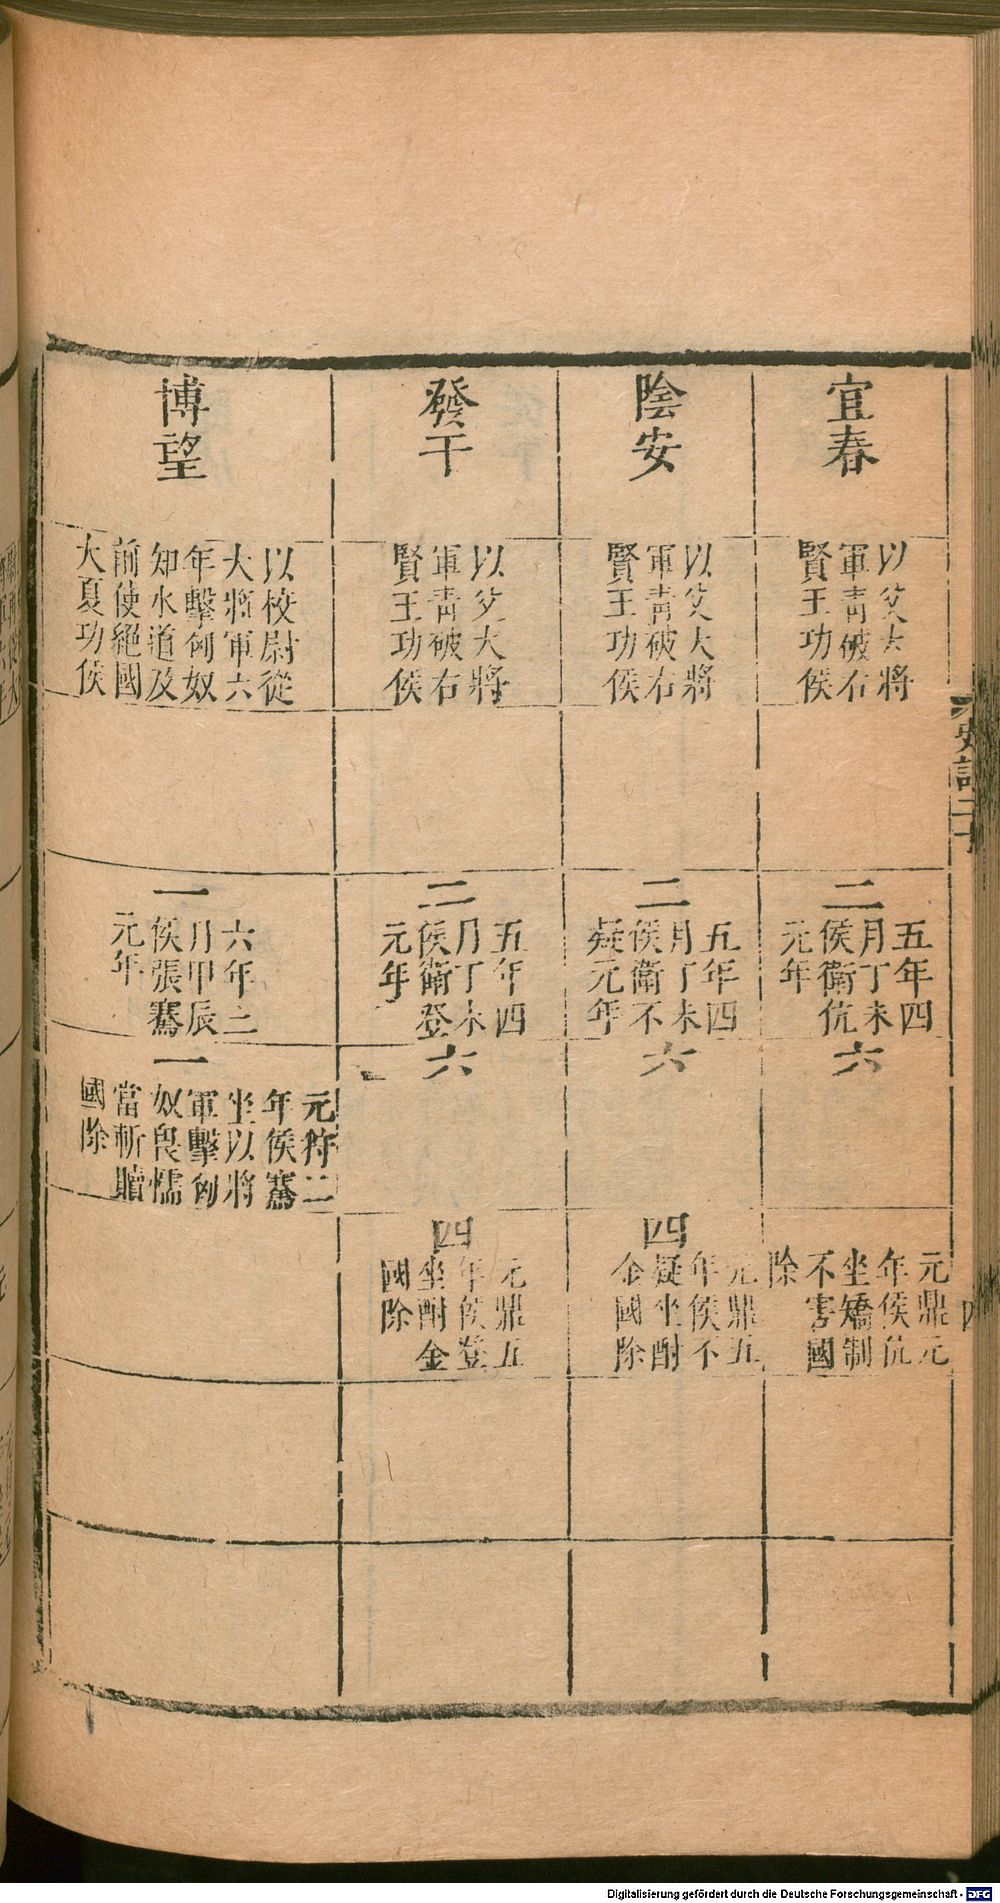 宜春
以父大將
軍青破右
賢王功侯
二
五年四
月丁未
侯衛伉
元年
六
元鼎元
年侯伉
坐矯制
不害國
除
陰安
以父大將
軍青破右
賢王功侯
二
五年四
月丁未
侯衛不
疑元年
六
四
元鼎五
年侯不
疑坐酎
金國除
發干
以父大將
軍青破右
賢王功侯
二
五年四
月丁未
侯衛登
元年
六
四
元鼎五
年侯登
坐酎金
國除
博望
以校尉從
大將軍六
年擊匈奴
知水道及
前使絕國
大夏功侯
一
六年三
月甲辰
侯張騫
元年
一
元狩二
年侯騫
坐以將
軍擊匈
奴畏懦
當斬贖
國除
史記二十
Digitalisierung gefördert durch die Deutsche Forschungsgemeinschaft - DFG